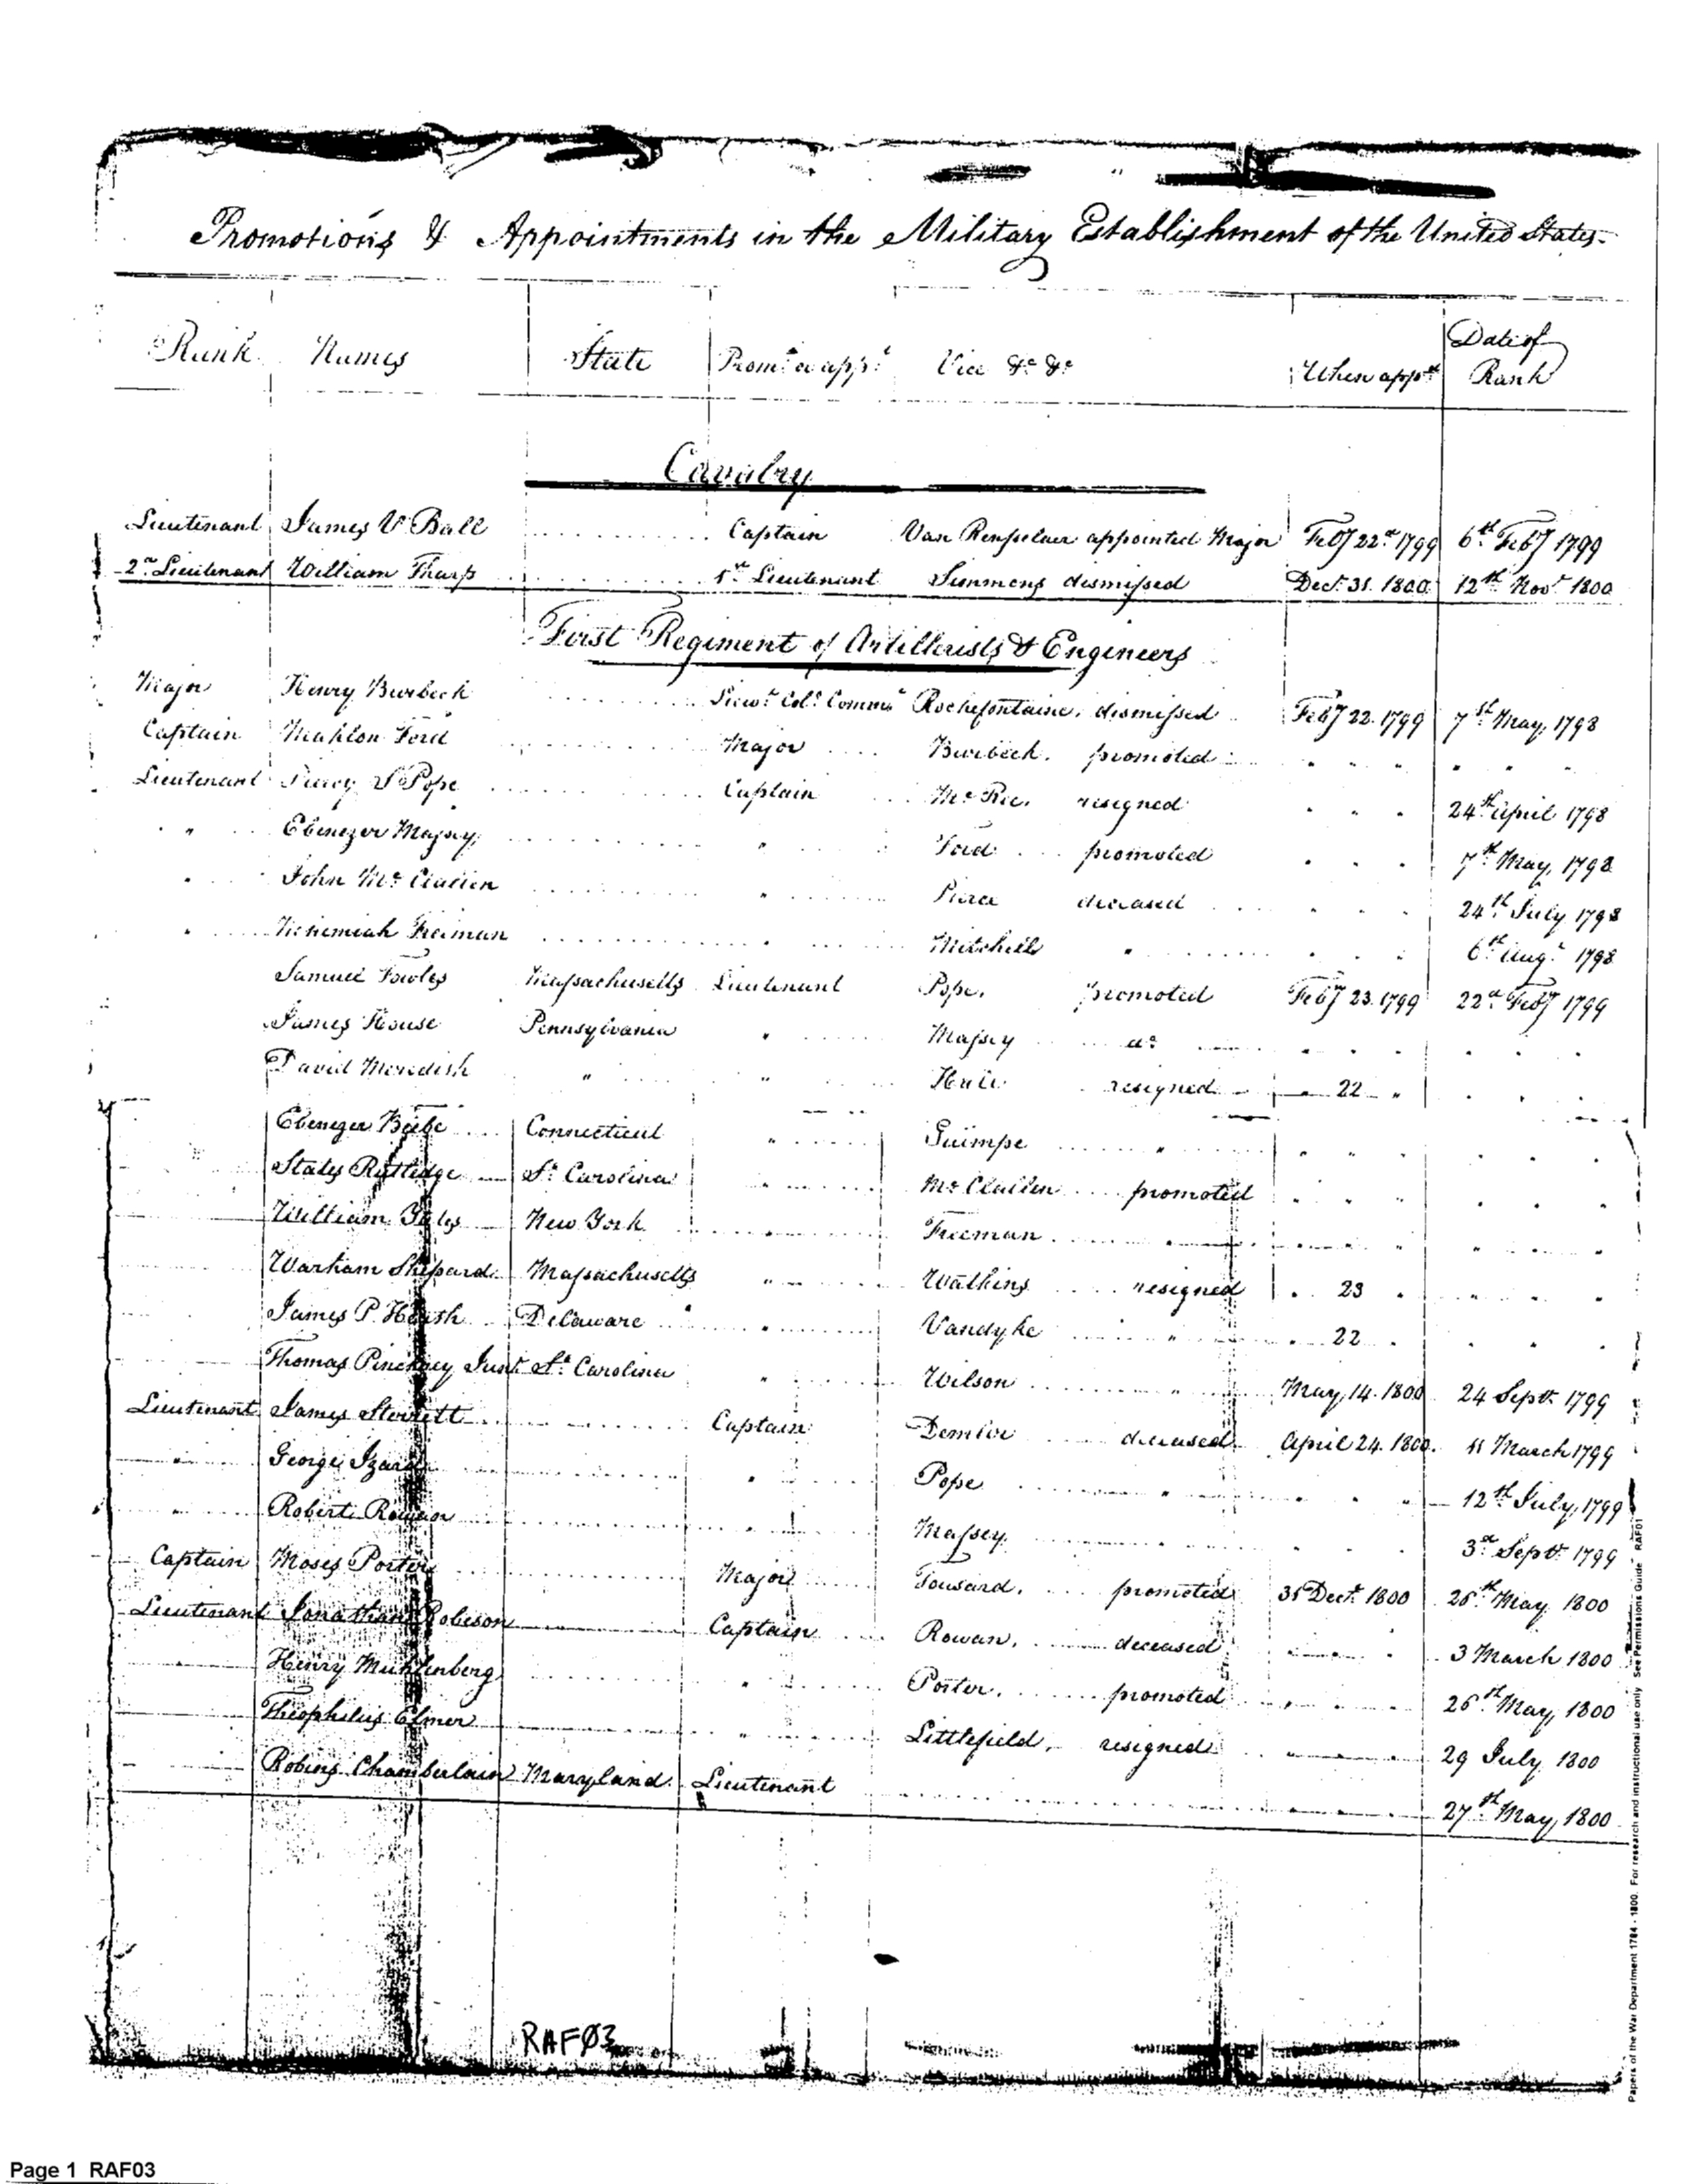 Promotions & Appointments in the Military Establishment of the United States.
Rank Names State Prom.d or app.d Vice &c &c When app.td Date of Rank
Cavalry
Lieutenant James V Ball Captain Van Rensselaer appointed Major Feby 22d 1799 6th Feby 1799
2nd Lieutenant William Tharp 1st Lieutenant Simmons dismissed Decr. 31. 1800 12th Novr 1800
First Regiment of Artillerists & Engineers
Major Henry Burbeck Lieut Col. Commt Rochefontaine, dismissed Feby 22. 1799 7th May, 1798
Captain Mahlon Ford Major Burbeck, promoted " " " " " "
Lieutenant Piercy S Pope Captain McRee, resigned " " " 24th April 1798
" Ebenezer Massey " Ford promoted " " " 7th May, 1798
" John McClallen " Pierce deceased " " " 24th July 1798
" Nehemiah Freeman " Mitchell " " " " 6th Augt 1798
Samuel Fowles Massachusetts Lieutenant Pope, promoted Feby 23. 1799 22d Feby 1799
James House Pennsylvania " Massey do " " " " " "
David Meredith " " Hale resigned " 22 " " " "
Ebenezer Beebe Connecticut " Guimpe " " " " " " "
States Rutledge So. Carolina " McClallen promoted " " " " " "
William Yates New York " Freeman " " " " " " "
Warham Shepard Massachusetts " Watkins resigned " 23 " " " "
James P. Heath Delaware " Vandyke " " 22 " " " "
Thomas Pinckney Junr So. Carolina " Wilson " May, 14. 1800 24 Septr 1799
Lieutenant James Sterrett Captain Demler deceased April 24. 1800. 11 March 1799
" George Izard " Pope " " " " 12th July, 1799
" Robert Rowan " Massey " " " " 3rd Septr 1799
Captain Moses Porter Major Tousard, promoted 31 Decr 1800 26th May 1800
Lieutenant Jonathan Robeson Captain Rowan, deceased " " 3 March 1800
" Henry Muhlenberg " Porter, promoted " " 26th May, 1800
" Theophilus Elmer " Littlefield, resigned " 29 July 1800
Robins Chamberlain Maryland Lieutenant " 27th May, 1800
RAFØ3
Papers of the War Department 1784 - 1800. For research and instructional use only. See Permissions Guide RAF01
Page 1 RAF03